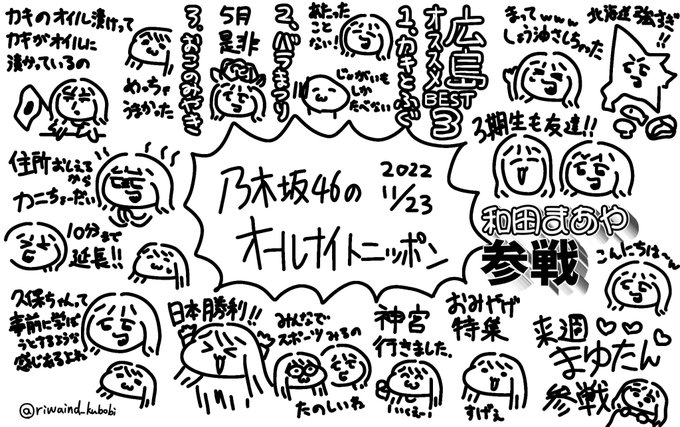 乃木坂46の
オールナイトニッポン
2022
11/23
北海道強すぎ
!!
まってwww
しょう油さしちゃった
3期生も友達!!
和田まあや
参戦
こんにちは〜w
広島
オススメBEST
3
1、カキとふぐ
あたった
こと
ない!
じゃがいも
しか
たべない
2、バラまつり
5月
是非
3、おこのみやき
カキのオイル漬けって
カキがオイルに
漬かっているの
めっちゃ
浅かった
住所おしえる
から
カニちょーだい
10分まで
延長!!
久保ちゃんって
事前に学ぼ
うとするような
感じあるよね
日本勝利!!
みんなで
スポーツみるの
たのしいね
神宮
行きました。
いくぞー!
おみやげ
特集
すげえ
来週♡♡♡
まゆたん
参戦
@riwaind_kubobi